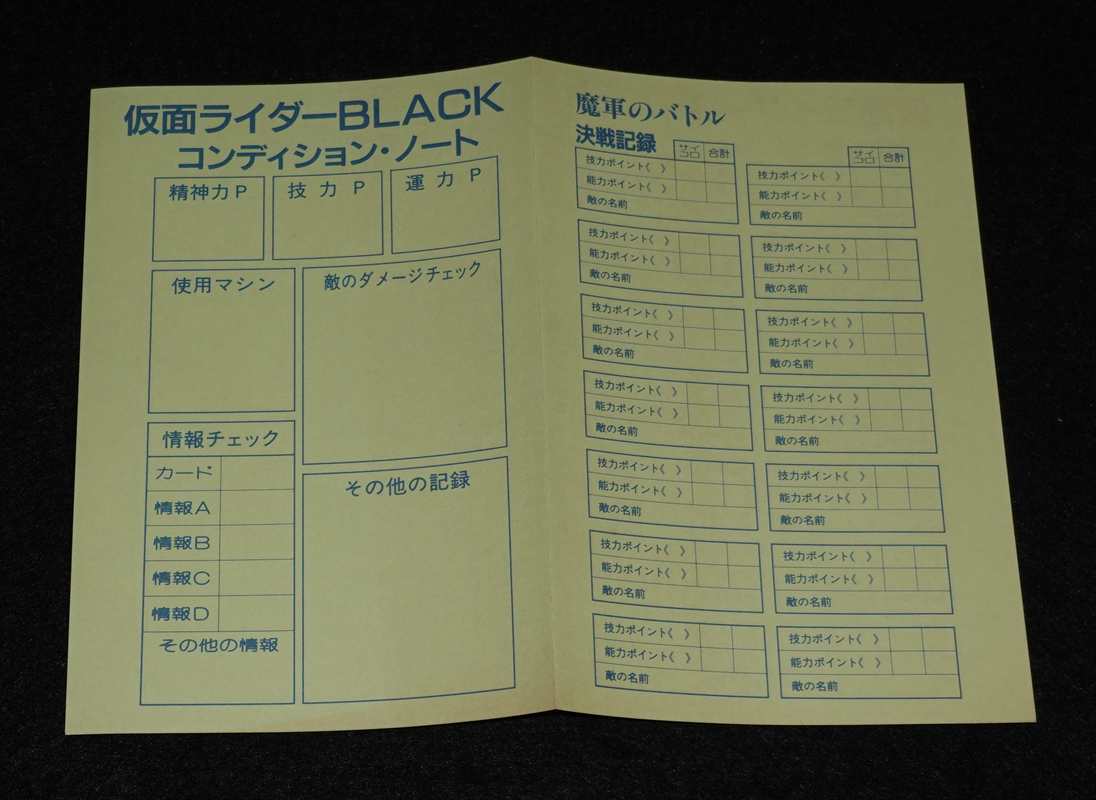 仮面ライダーBLACK
コンディション・ノート
精神力P
技力P
運力P
使用マシン
敵のダメージチェック
情報チェック
カード
情報A
情報B
情報C
情報D
その他の情報
その他の記録
魔軍のバトル
決戦記録
サイコロ 合計
技力ポイント( )
能力ポイント( )
敵の名前
技力ポイント( )
能力ポイント( )
敵の名前
技力ポイント( )
能力ポイント( )
敵の名前
技力ポイント( )
能力ポイント( )
敵の名前
技力ポイント( )
能力ポイント( )
敵の名前
技力ポイント( )
能力ポイント( )
敵の名前
技力ポイント( )
能力ポイント( )
敵の名前
サイコロ 合計
技力ポイント( )
能力ポイント( )
敵の名前
技力ポイント( )
能力ポイント( )
敵の名前
技力ポイント( )
能力ポイント( )
敵の名前
技力ポイント( )
能力ポイント( )
敵の名前
技力ポイント( )
能力ポイント( )
敵の名前
技力ポイント( )
能力ポイント( )
敵の名前
技力ポイント( )
能力ポイント( )
敵の名前